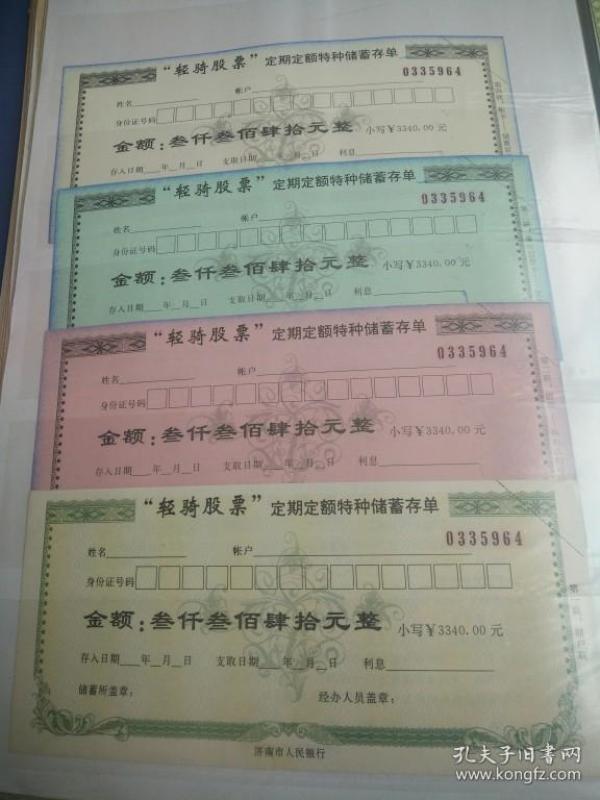 “轻骑股票”定期定额特种储蓄存单
0335964
姓名 帐户
身份证号码
金额：叁仟叁佰肆拾元整 小写￥3340.00元
存入日期 年 月 日 支取日期 年 月 日 利息
“轻骑股票”定期定额特种储蓄存单
0335964
姓名 帐户
身份证号码
金额：叁仟叁佰肆拾元整 小写￥3340.00元
存入日期 年 月 日 支取日期 年 月 日 利息
“轻骑股票”定期定额特种储蓄存单
0335964
姓名 帐户
身份证号码
金额：叁仟叁佰肆拾元整 小写￥3340.00元
存入日期 年 月 日 支取日期 年 月 日 利息
“轻骑股票”定期定额特种储蓄存单
0335964
姓名 帐户
身份证号码
金额：叁仟叁佰肆拾元整 小写￥3340.00元
存入日期 年 月 日 支取日期 年 月 日 利息
储蓄所盖章： 经办人员盖章：
济南市人民银行
孔夫子旧书网
www.kongfz.com